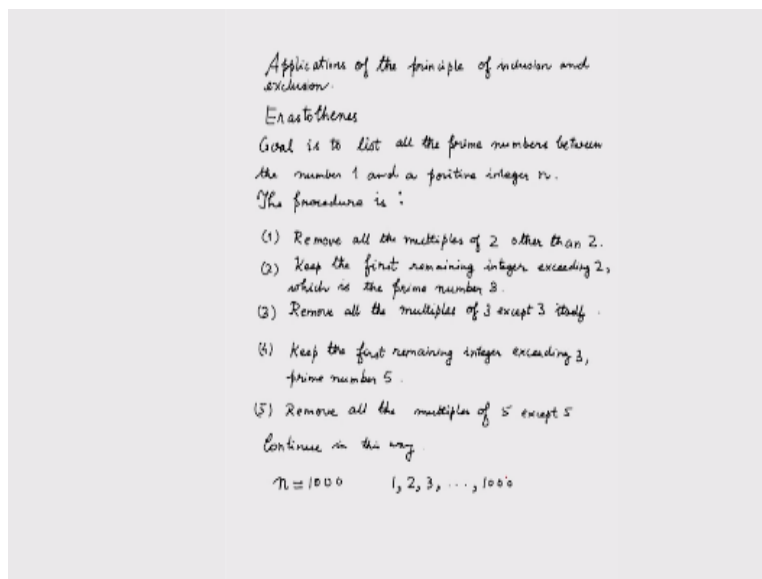 Applications of the principle of inclusion and
exclusion.
Erastothenes
Goal is to list all the prime numbers between
the number 1 and a positive integer n.
The procedure is :
(1) Remove all the multiples of 2 other than 2.
(2) Keep the first remaining integer exceeding 2,
which is the prime number 3.
(3) Remove all the multiples of 3 except 3 itself.
(4) Keep the first remaining integer exceeding 3,
prime number 5.
(5) Remove all the multiples of 5 except 5
Continue in this way.
n = 1000 1, 2, 3, ..., 1000